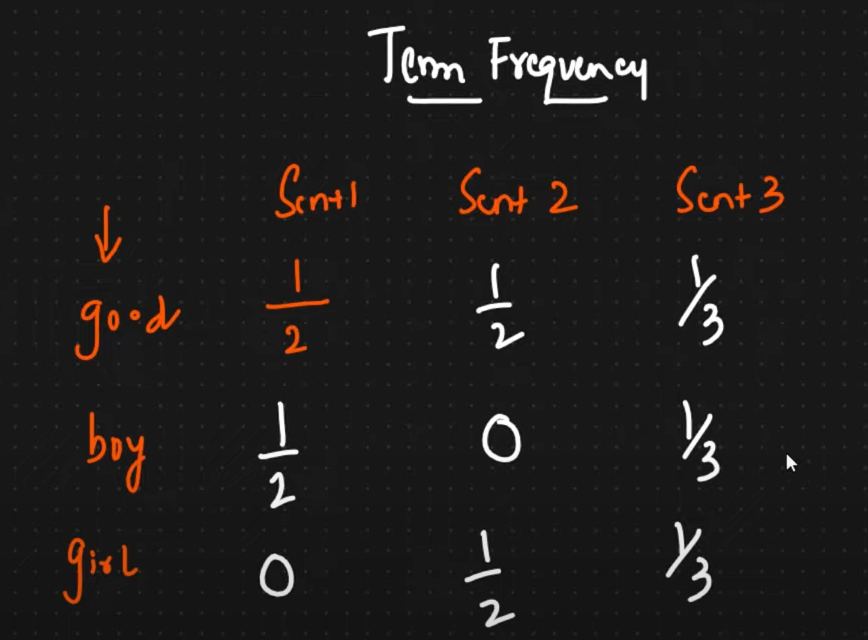 Term Frequency
Sent1 Sent 2 Sent 3
good 1/2 1/2 1/3
boy 1/2 0 1/3
girl 0 1/2 1/3